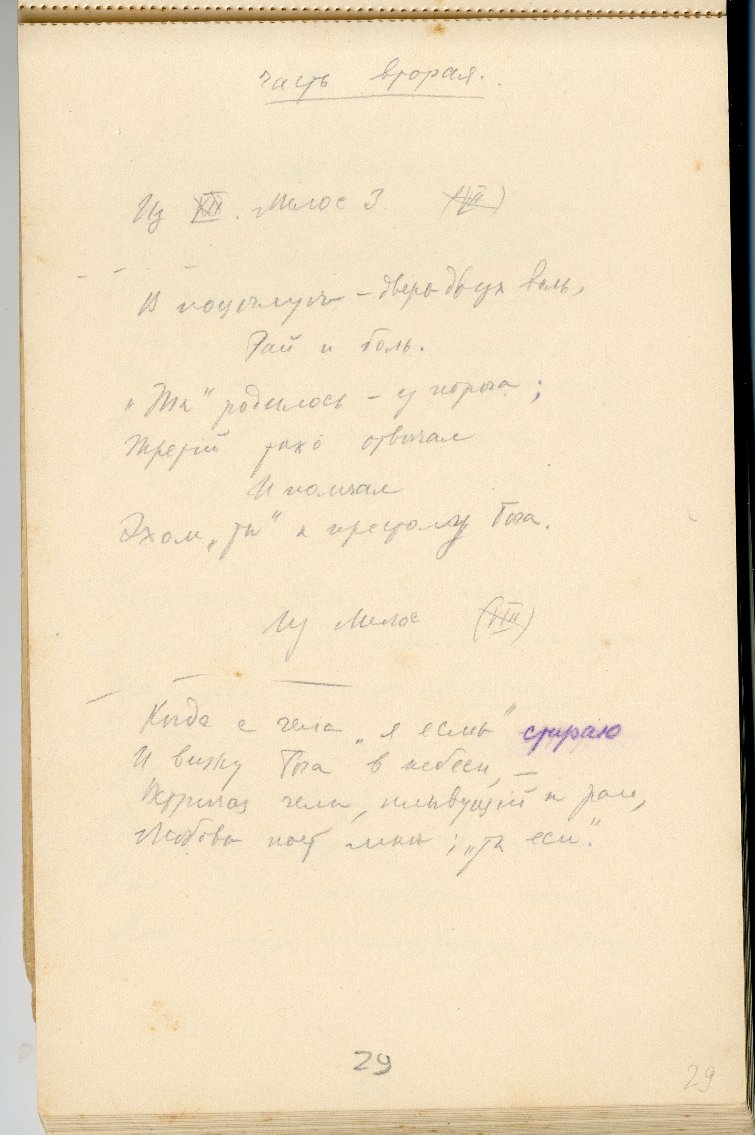 часть вторая.
Из XIII. Мелос 3 (VII)
В поцелуи – дверь двух воль,
Рай и боль.
„Ты“ родилось – у порога;
Третий тихо отвечал
И помчал
Эхом „ты“ к престолу Бога.
Из Мелос (VIII)
Когда с чела „я есмь“ стираю
И вижу Бога в небеси, –
Встречая челн, плывущий к раю,
Любовь поет мне: „ты еси“.
29
29